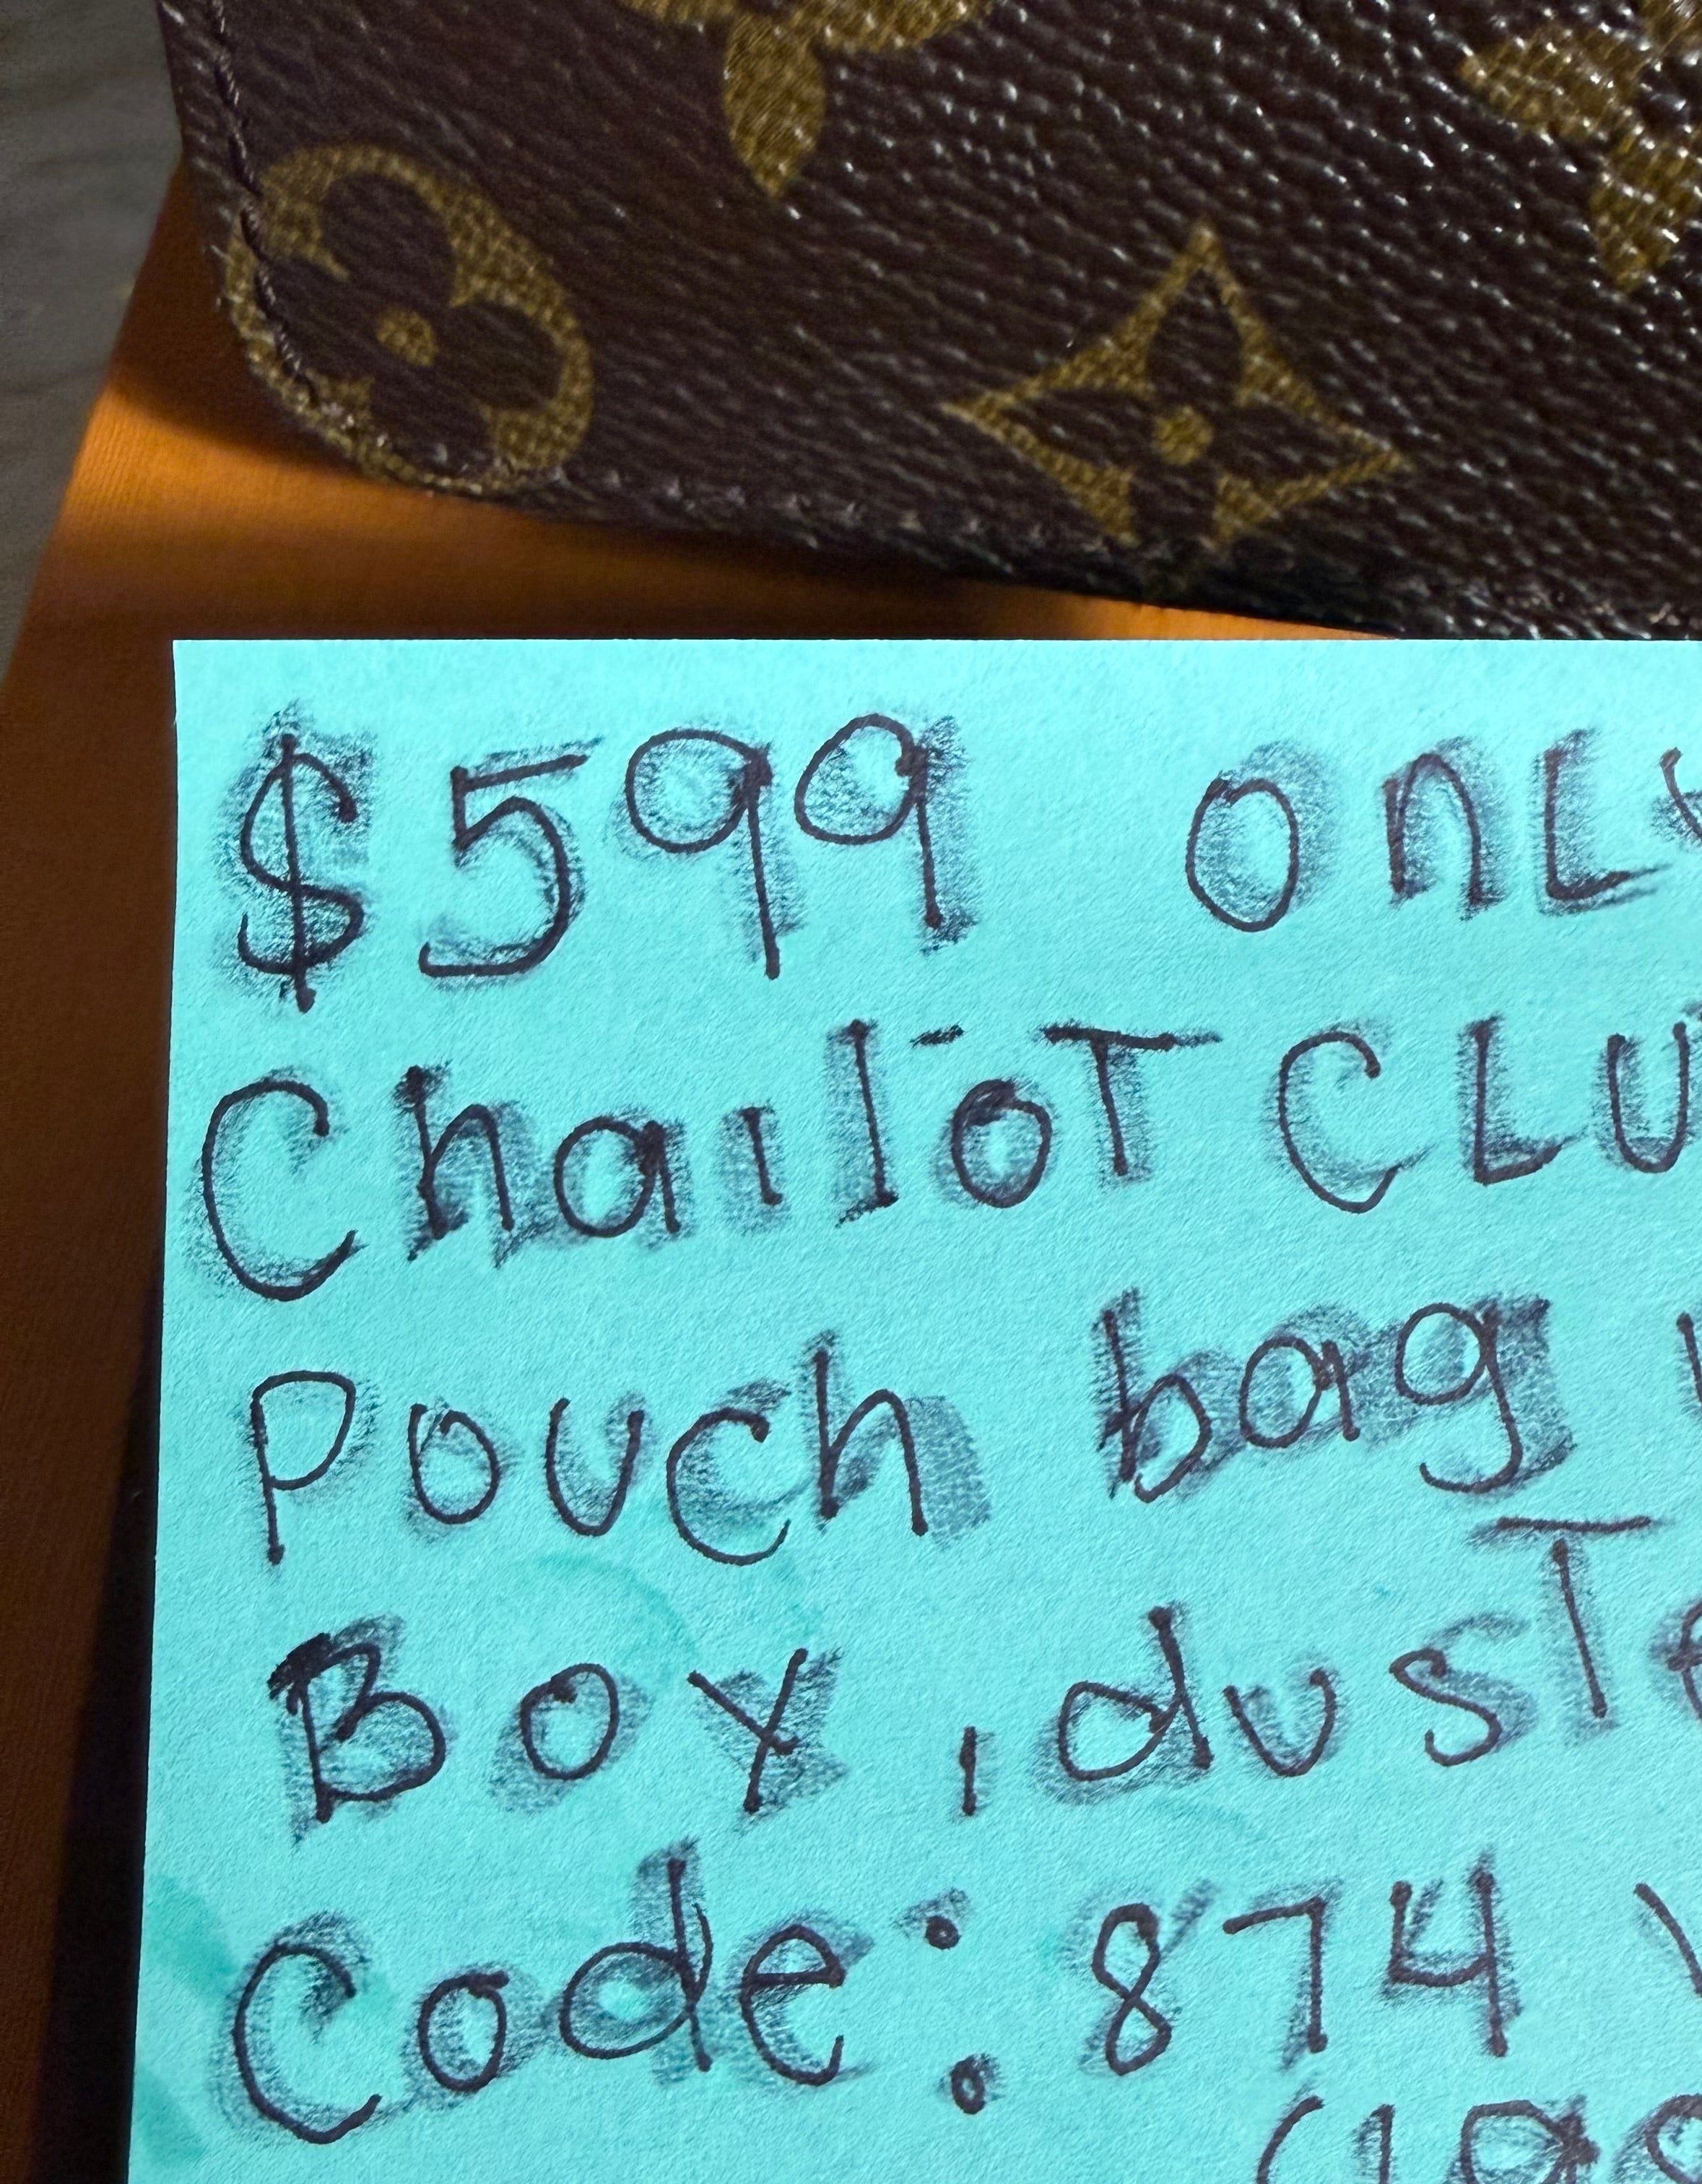 $599 only
Chailot Clu
Pouch bag
Box, dust
Code: 874